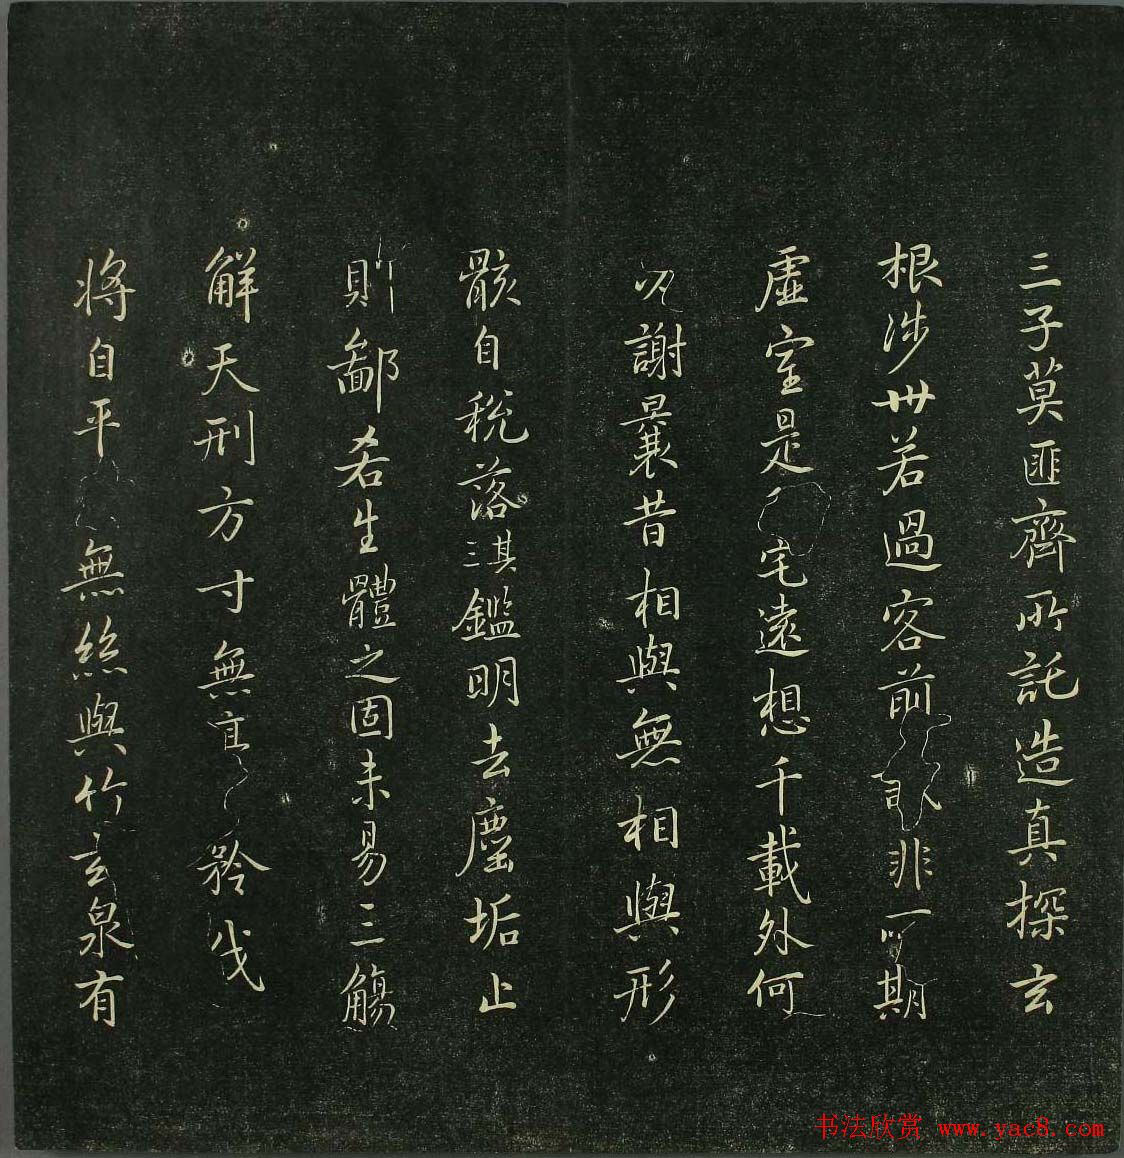 三子莫匪齊所託造真探玄
根涉世若過客前非可期
虛室是宅遠想千載外何
謝曩昔相與無相與形
骸自稅落其三鑑明去塵垢止
則鄙吝生體之固未易三觴
解天刑方寸無矜伐
將自平無絲與竹玄泉有
书法欣赏 www.yac8.com